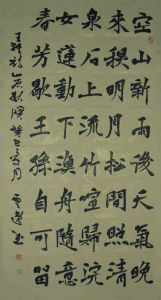 空山新雨後天氣晚
來秋明月松間照清
泉石上流竹喧歸浣
女蓮動下漁舟隨意
春芳歇王孫自可留
王維詩山居秋暝癸巳月